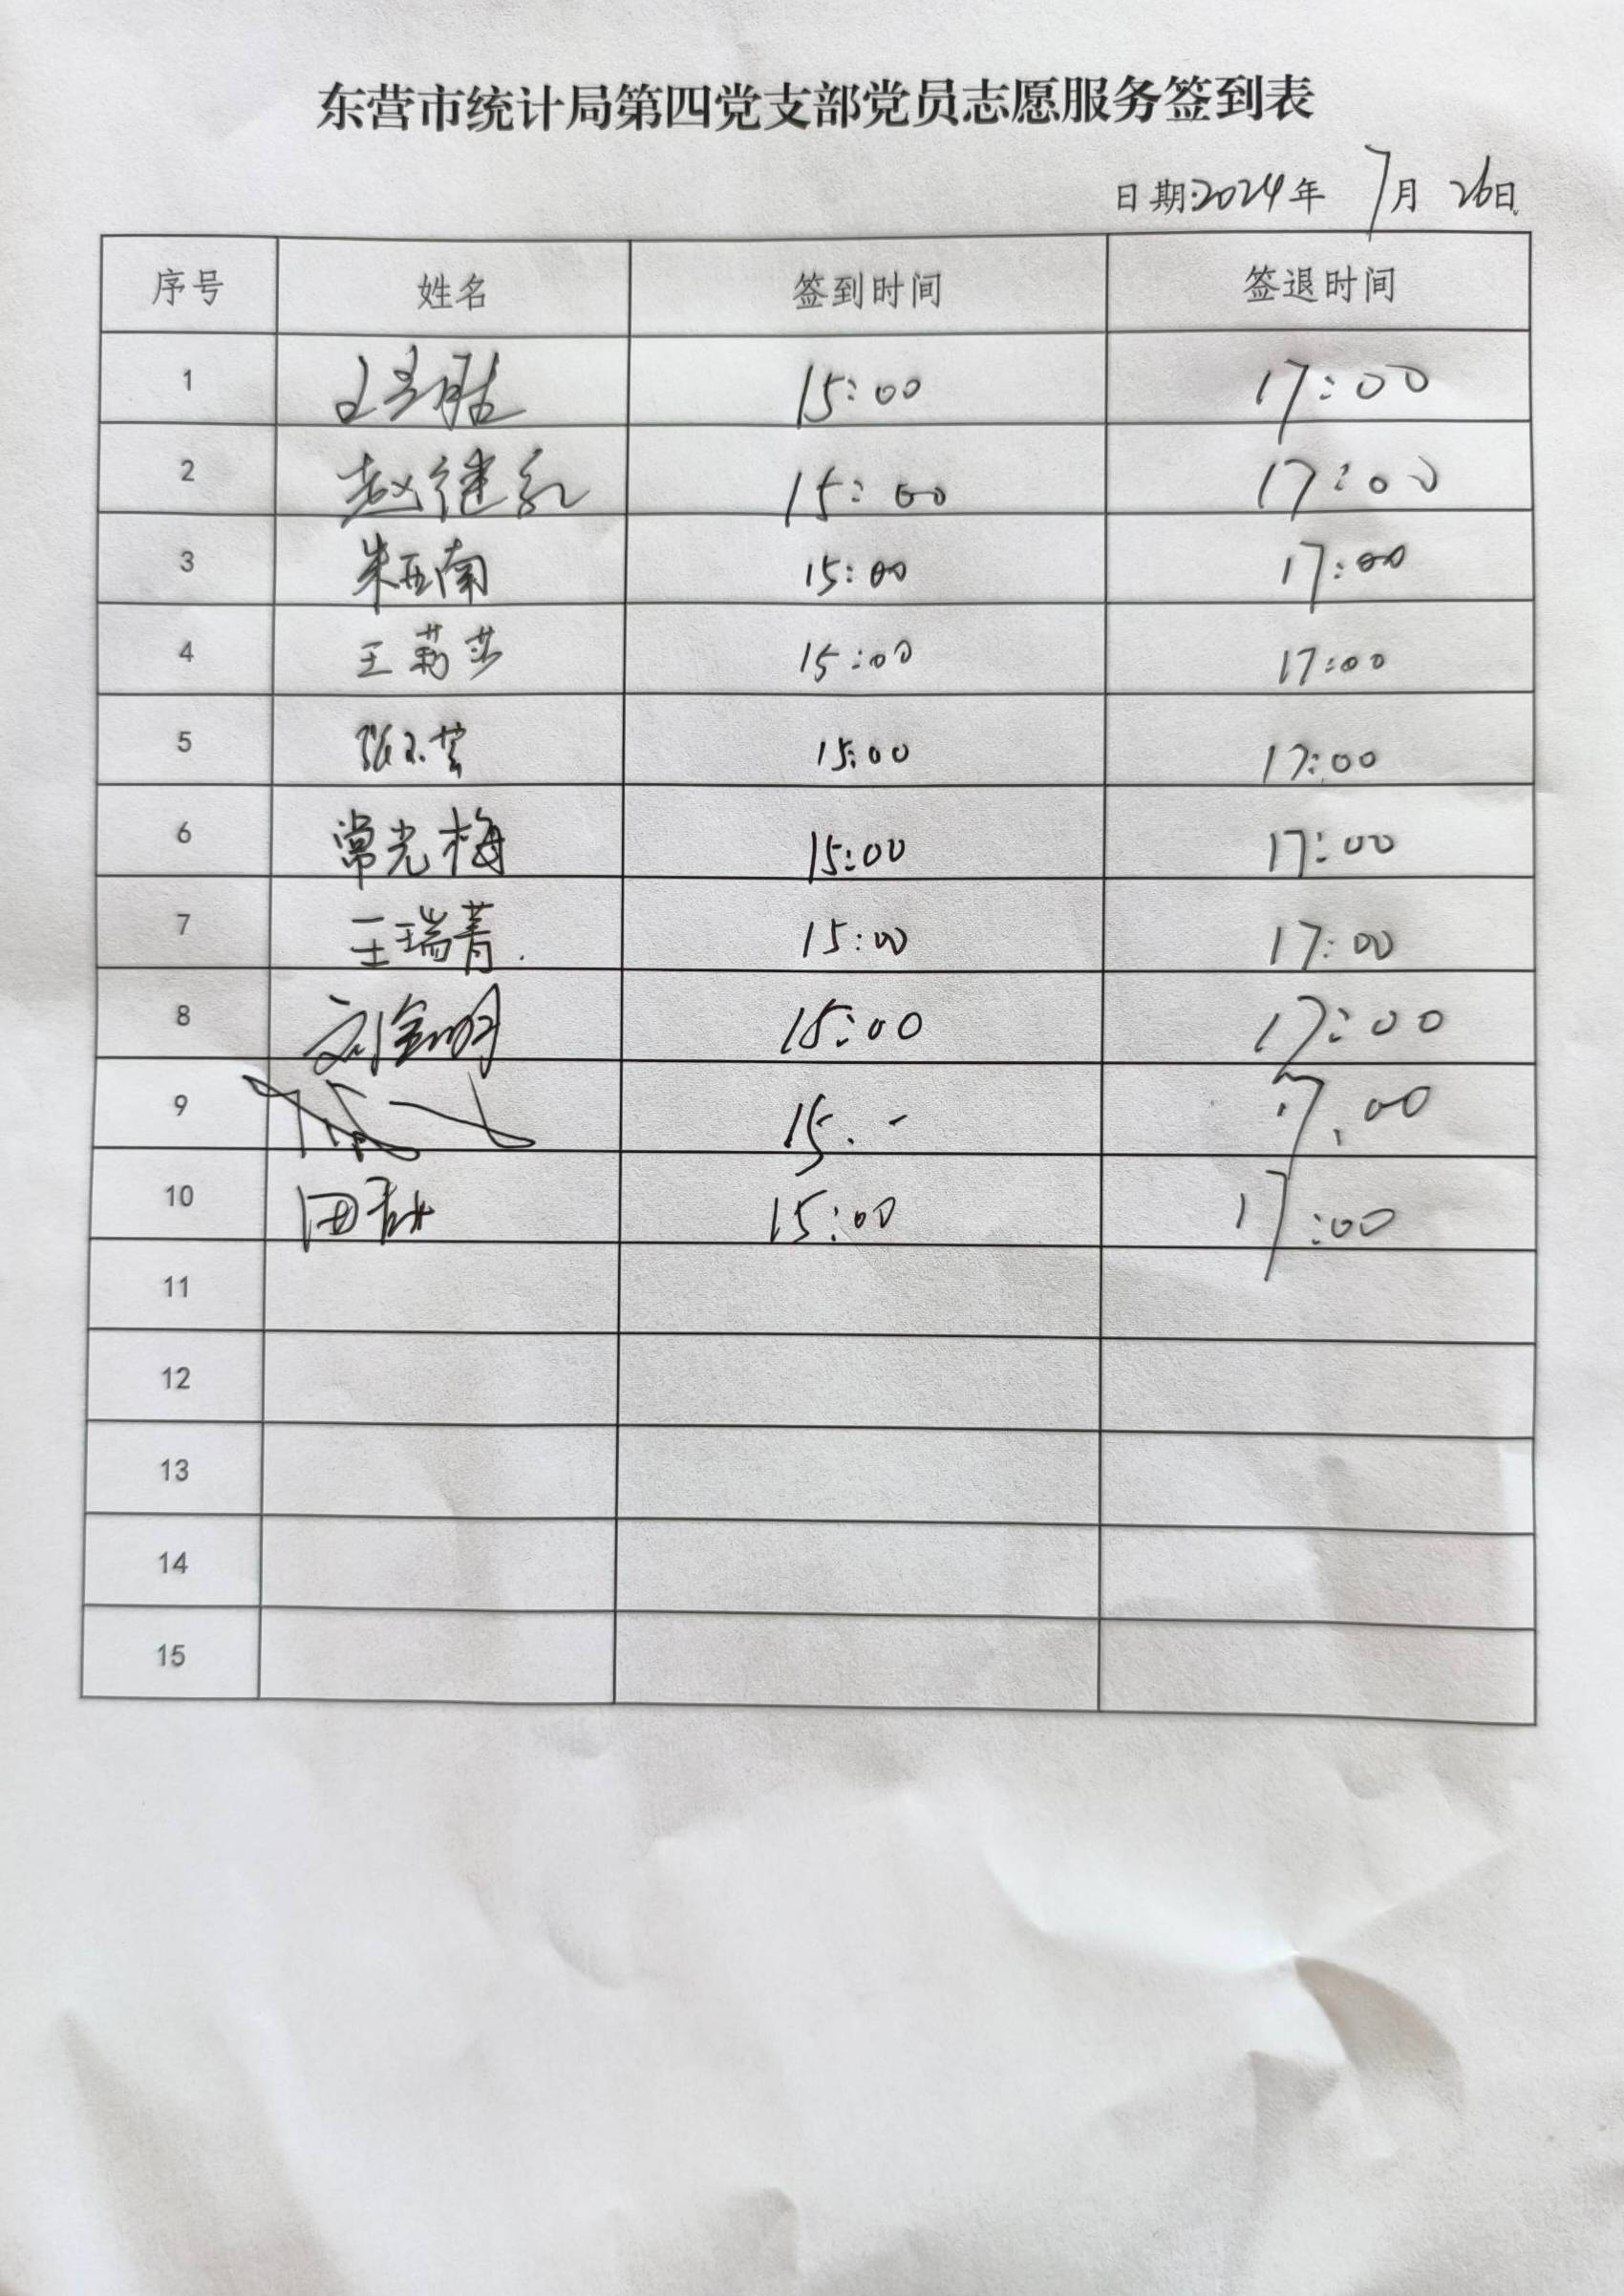 东营市统计局第四党支部党员志愿服务签到表
日期:2024年 7月 26日
序号 姓名 签到时间 签退时间
1 15:00 17:00
2 赵继红 15:00 17:00
3 朱亚南 15:00 17:00
4 王莉莎 15:00 17:00
5 15:00 17:00
6 常光梅 15:00 17:00
7 王瑞菁. 15:00 17:00
8 刘金明 15:00 17:00
9 15. - 17.00
10 田甜 15:00 17:00
11
12
13
14
15